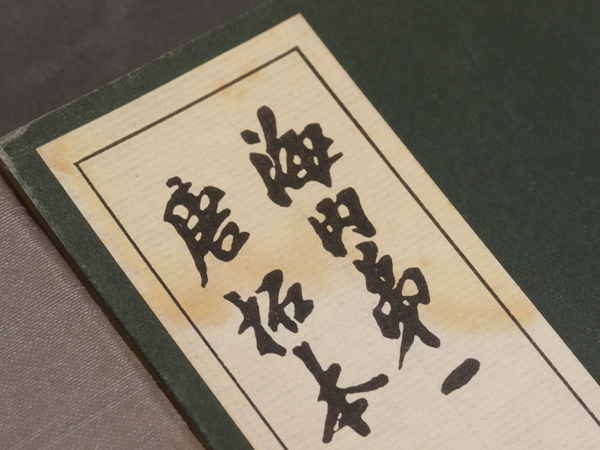 海内第一
唐拓本